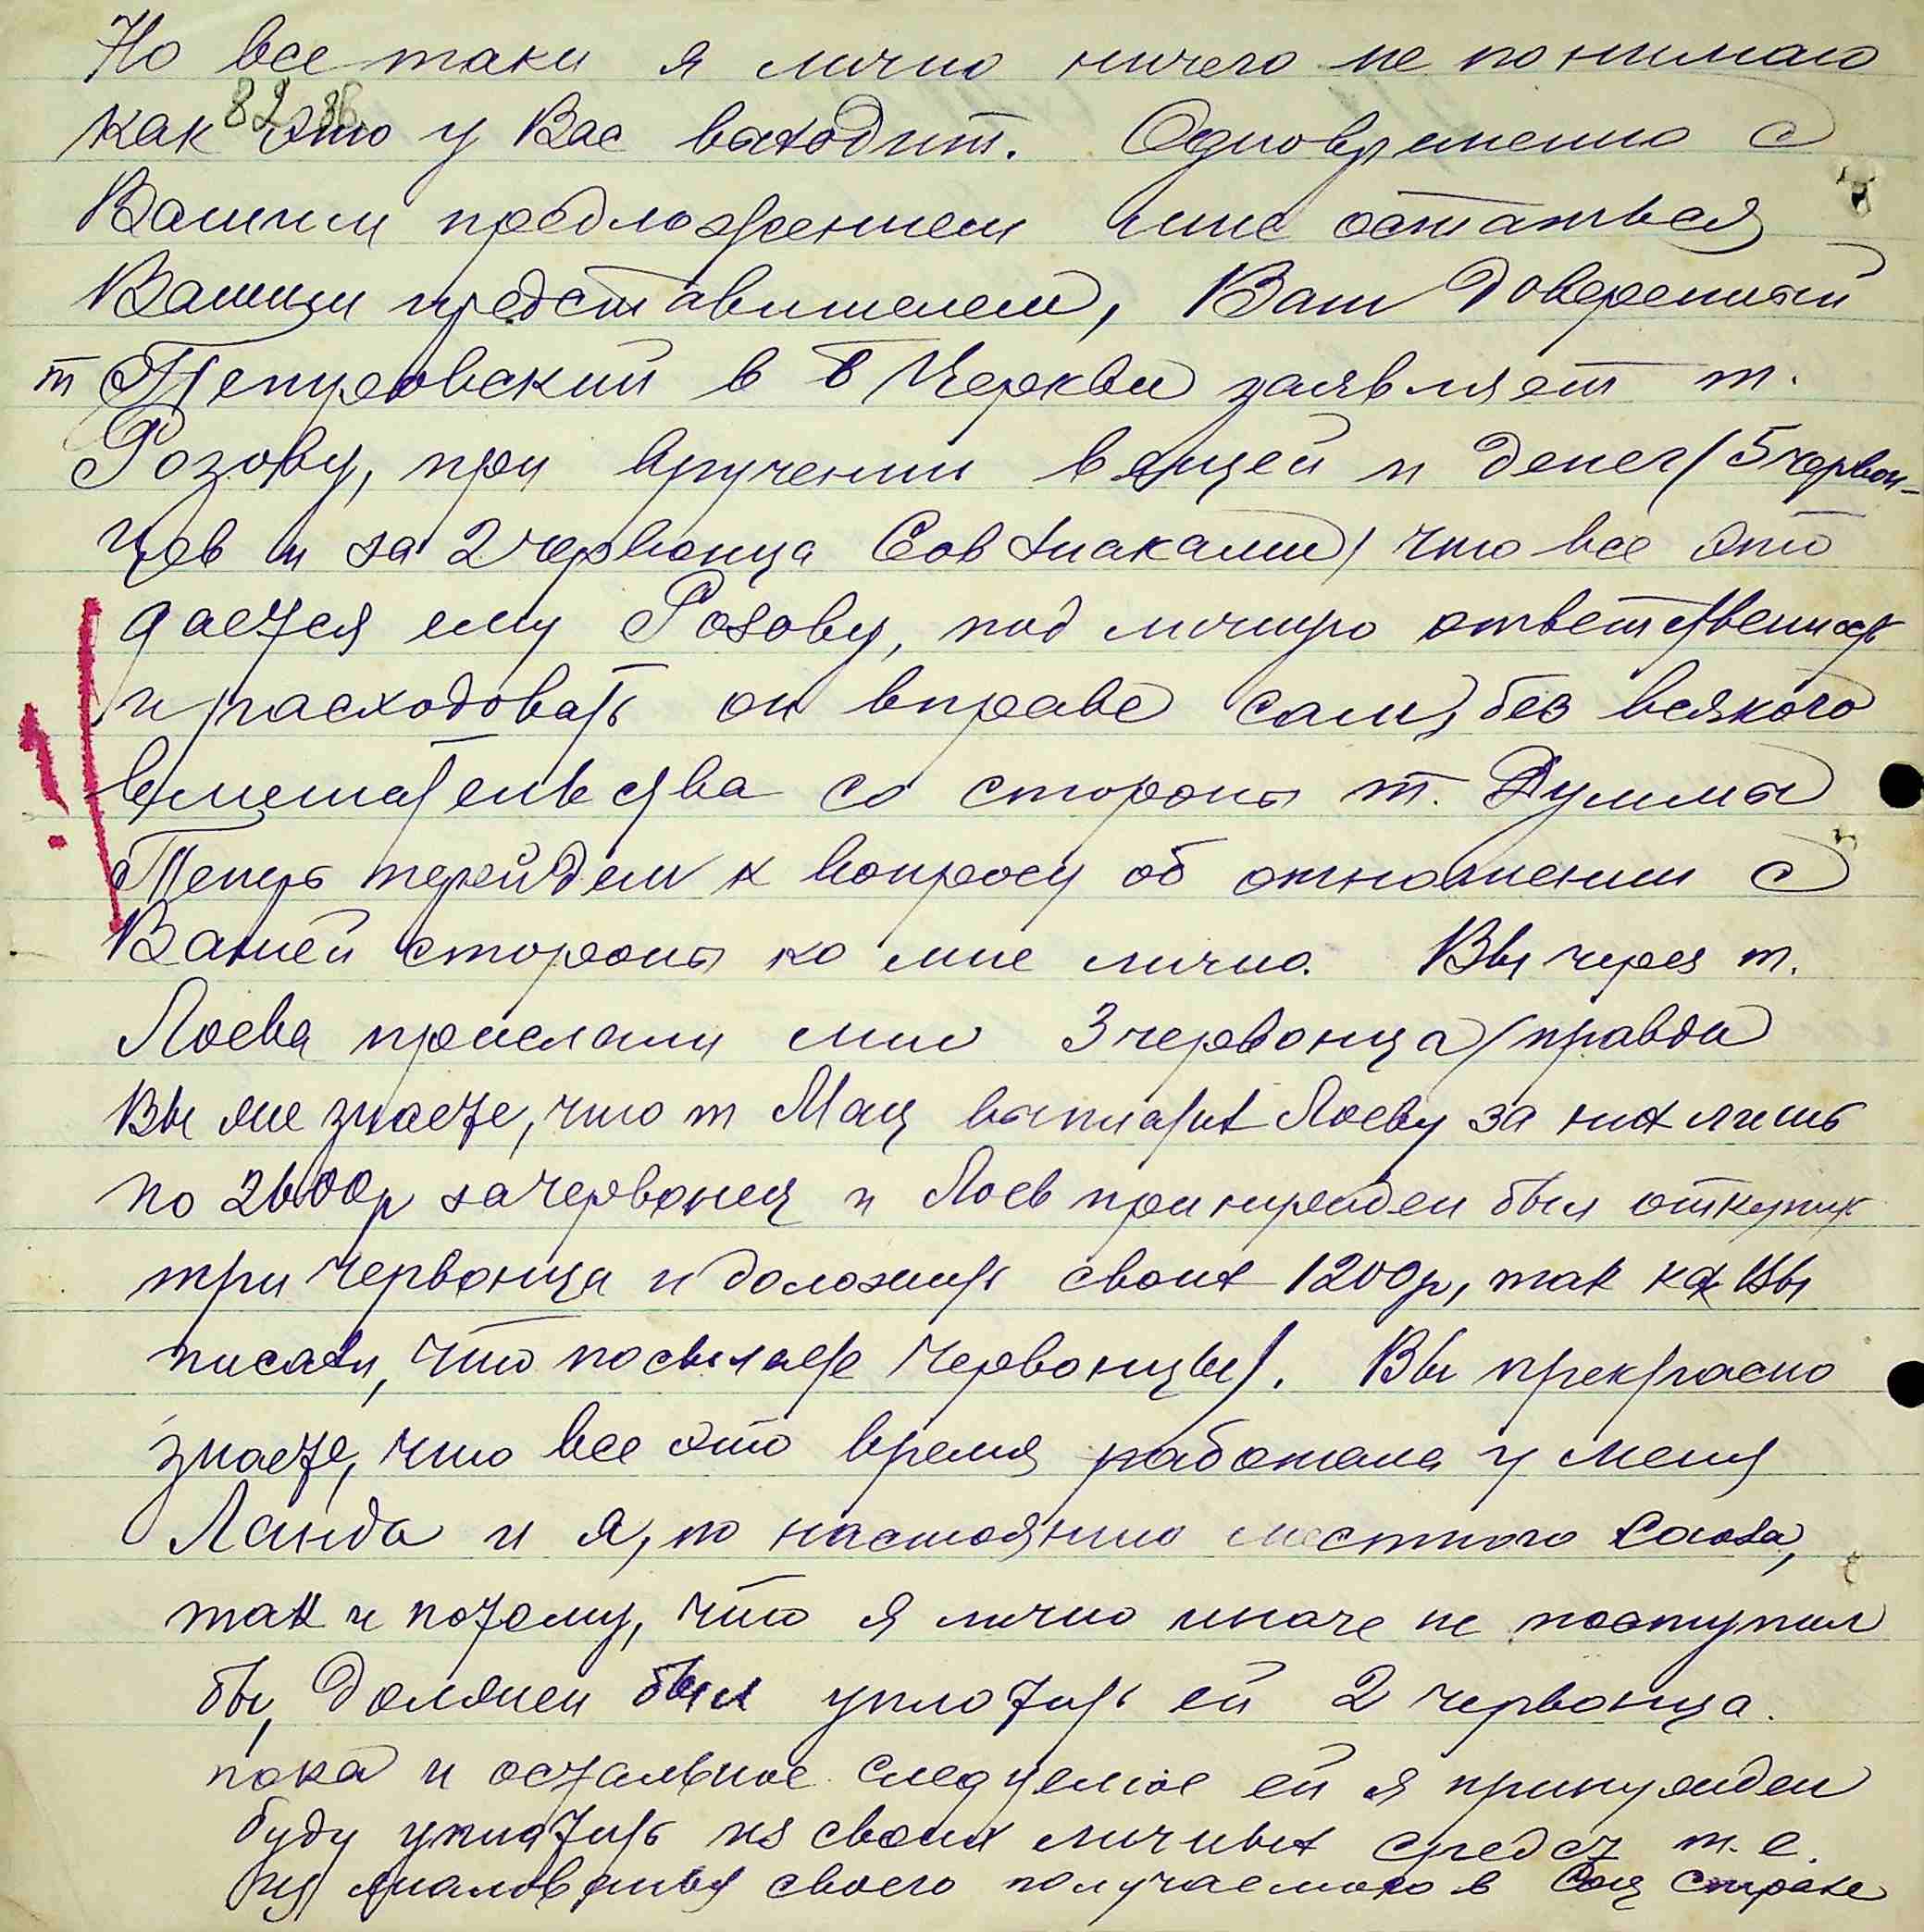 Но все таки я лично ничего не понимаю
82
как это у Вас выходит. Одновременно с
Вашим предложением мне остаться
Вашим представителем, Ваш доверенный
т Теплевский в Б Церкви заявляет т.
Розову, при вручении вещей и денег (5 червон-
цев и за 2 червонца Совзнаками) что все это
дается ему Розову, под личную ответственность
и расходовать он вправе сам, без всякого
вмешательства со стороны т. Думмы
Теперь перейдем к вопросу об отношении с
Вашей стороны ко мне лично. Вы через т.
Лоева прислали мне 3 червонца (правда
Вы не знаете, что т Мац выплатил Лоеву за них лишь
по 2600р за червонец и Лоев принужден был откупить
три червонца и доложить своих 1200р, так как Вы
писали, что посылаете червонцы). Вы прекрасно
знаете, что все это время работала у меня
Ланда и я, по настоянию местного Союза,
так и потому, что я лично иначе не поступил
бы, должен был уплатить ей 2 червонца.
пока и остальное следуемое ей я принужден
буду уплатить из своих личных средст т.е.
из жалованья своего получаемого в Соц Страхе